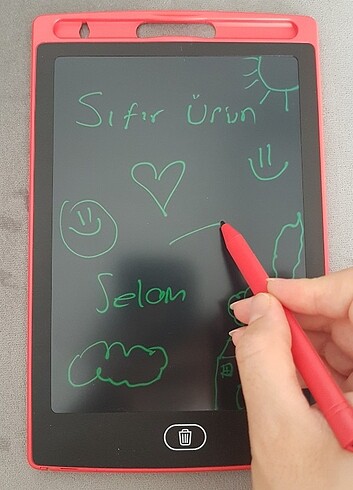 Sıfır Ürün
Selam